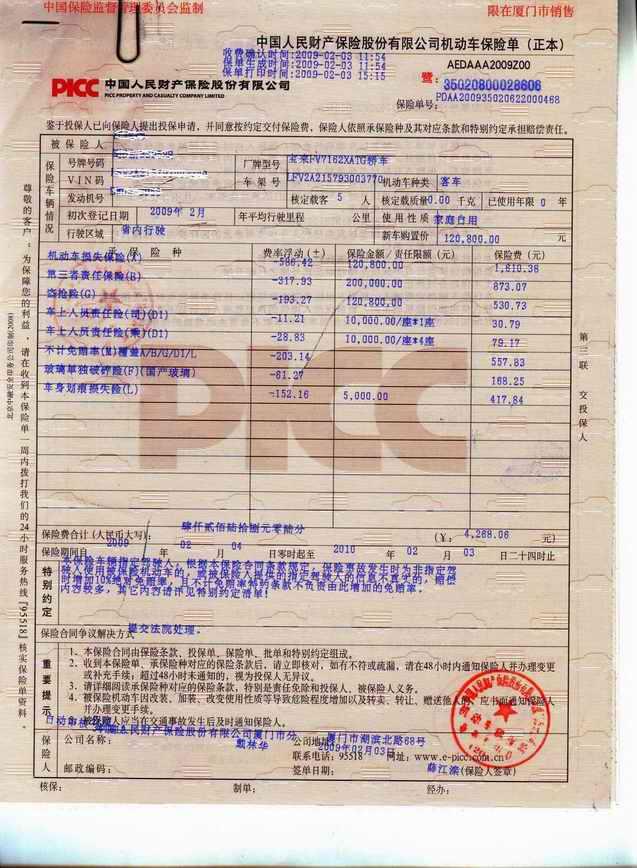 中国保险监督管理委员会监制
限在厦门市销售
中国人民财产保险股份有限公司机动车保险单（正本）
收费确认时间:2009-02-03 11:54
保单生成时间:2009-02-03 11:54
保单打印时间:2009-02-03 15:15
AEDAAA2009Z00
PICC 中国人民财产保险股份有限公司
PICC PROPERTY AND CASUALTY COMPANY LIMITED
35020800028606
保险单号: PDAA200935020622000468
鉴于投保人已向保险人提出投保申请，并同意按约定交付保险费，保险人依照承保险种及其对应条款和特别约定承担赔偿责任。
被保险人
保险车辆情况
号牌号码 厂牌型号 宝来FV7162XATG轿车
VIN码 车架号 LFV2A215793003770 机动车种类 客车
发动机号 核定载客 5 人 核定载质量 0.00 千克 已使用年限 0 年
初次登记日期 2009年 2月 年平均行驶里程 公里 使用性质 家庭自用
行驶区域 省内行驶 新车购置价 120,800.00 元
承保险种 费率浮动（±） 保险金额/责任限额（元） 保险费（元）
机动车损失保险(A) -586.42 120,800.00 1,610.38
第三者责任保险(B) -317.93 200,000.00 873.07
盗抢险(G) -193.27 120,800.00 530.73
车上人员责任险(司)(D1) -11.21 10,000.00/座*1座 30.79
车上人员责任险(乘)(D1) -28.83 10,000.00/座*4座 79.17
不计免赔率(M)覆盖A/B/G/D1/L -203.14 557.83
玻璃单独破碎险(F)(国产玻璃) -61.27 168.25
车身划痕损失险(L) -152.16 5,000.00 417.84
PICC
保险费合计（人民币大写）: 肆仟贰佰陆拾捌元零陆分 （¥: 4,268.06 元）
保险期间自 2009 年 02 月 04 日零时起至 2010 年 02 月 03 日二十四时止
特别约定
本保险车辆指定驾驶人，根据本保险合同条款规定，保险事故发生时为非指定驾
驶人使用被保险机动车的，或被保险人提供的指定驾驶人的信息不真实的，赔偿
时增加10%绝对免赔率，且不计免赔率特约条款不负责由此增加的免赔率。
内容较多，其它内容请详见特别约定清单！
保险合同争议解决方式 提交法院处理。
重要提示
1. 本保险合同由保险条款、投保单、保险单、批单和特别约定组成。
2. 收到本保险单、承保险种对应的保险条款后，请立即核对，如有不符或疏漏，请在48小时内通知保险人并办理变更
或补充手续；超过48小时未通知的，视为投保人无异议。
3. 请详细阅读承保险种对应的保险条款，特别是责任免除和投保人、被保险人义务。
4. 被保险机动车因改装、加装、改变使用性质等导致危险程度增加以及转卖、转让、赠送他人的，应书面通知保险人
并办理变更手续。
5. 被保险人应当在交通事故发生后及时通知保险人。
保险人
公司名称: 中国人民财产保险股份有限公司厦门市分 公司地址: 厦门市湖滨北路68号
联系电话: 95518 网址: www.e-picc.com.cn
邮政编码: 签单日期: 2009年02月03日 （保险人签章）
核保: 制单: 经办:
尊敬的客户：为保障您的利益，请在收到本保险单一周内拨打我们的24小时服务热线『95518』核实保险单资料。
第三联 交投保人